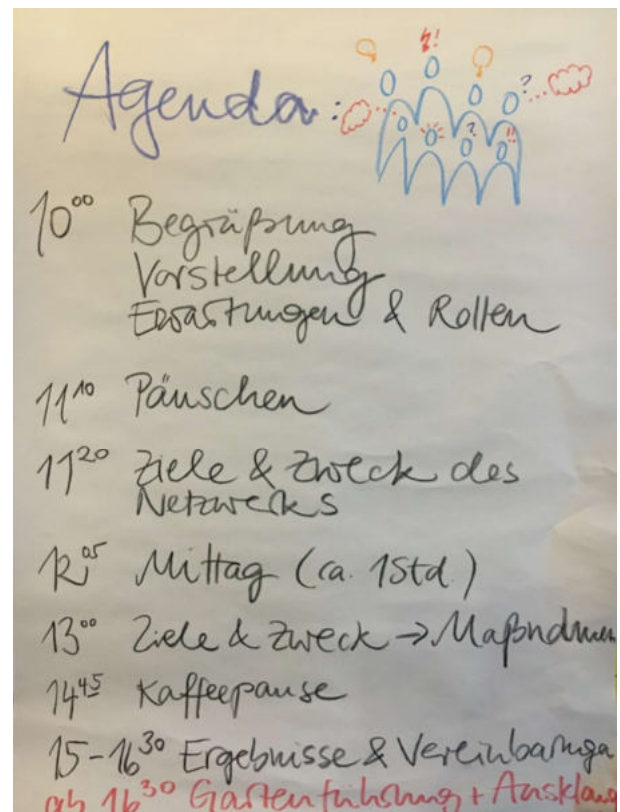 Agenda:
10⁰⁰ Begrüßung
Vorstellung
Erwartungen & Rollen
11¹⁰ Päuschen
11²⁰ Ziele & Zweck des
Netzwerks
12⁰⁵ Mittag (ca. 1Std.)
13⁰⁰ Ziele & Zweck → Maßnahmen
14⁴⁵ Kaffeepause
15-16³⁰ Ergebnisse & Vereinbarungen
ab 16³⁰ Gartenführung + Ausklang